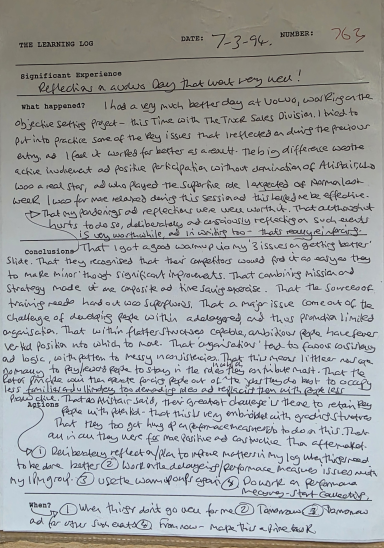 THE LEARNING LOG
DATE: 7-3-94. NUMBER: 763
Significant Experience
Reflections on a Volvo Day that went very well!
What happened? I had a very much better day at Volvo, working on the
objective setting project - this time with the Truck Sales Division. I tried to
put into practice some of the key issues that I reflected on during the previous
entry, and I feel it worked far better as a result. The big difference was the
active involvement and positive participation without domination of Alistair, who
was a real star, and who played the supportive role I expected of Norman last
week. I was far more relaxed during this session and this helped me be effective.
That my ponderings and reflections were well worth it. That although it
hurts to do so, deliberately and consciously reflecting on such events
is very worthwhile, and in writing too - that's really reinforcing.
Conclusions That I got a good warm up via my '3 issues on getting better'
slide. That they recognised that their competitors would find it as easy as they
to make minor though significant improvements. That combining mission and
strategy made it one composite and time saving exercise. That the sources of
training needs hand out was superfluous. That a major issue came out of the
challenge of developing people within a delayered and thus promotion limited
organisation. That within flatter structures capable, ambitious people have fewer
vertical positions into which to move. That organisations tend to favour consistency
and logic, with pattern to messy inconsistencies. That this means little or now are
to pay/reward people to stay in the roles they contribute most. That the
Peter principle
too demanding and replaced them with people less
productive. That as Alistair said, their greatest challenge is there, to retain key
people with potential - that this is very embedded with grading structures
That they too got hung up on performance measures to do on this. That
all in all they were far more positive and constructive than
Actions
① Deliberately reflect on/plan to improve matters in my log when things need
to be done better ② Work on the delayering/performance measures issues with
my group. ③ Use the warm up again ④ Do work on performance
measures - start collecting.
When? ① When things don't go well for me ② Tomorrow ③ Tomorrow
and for other such events ④ From now - make this a five task